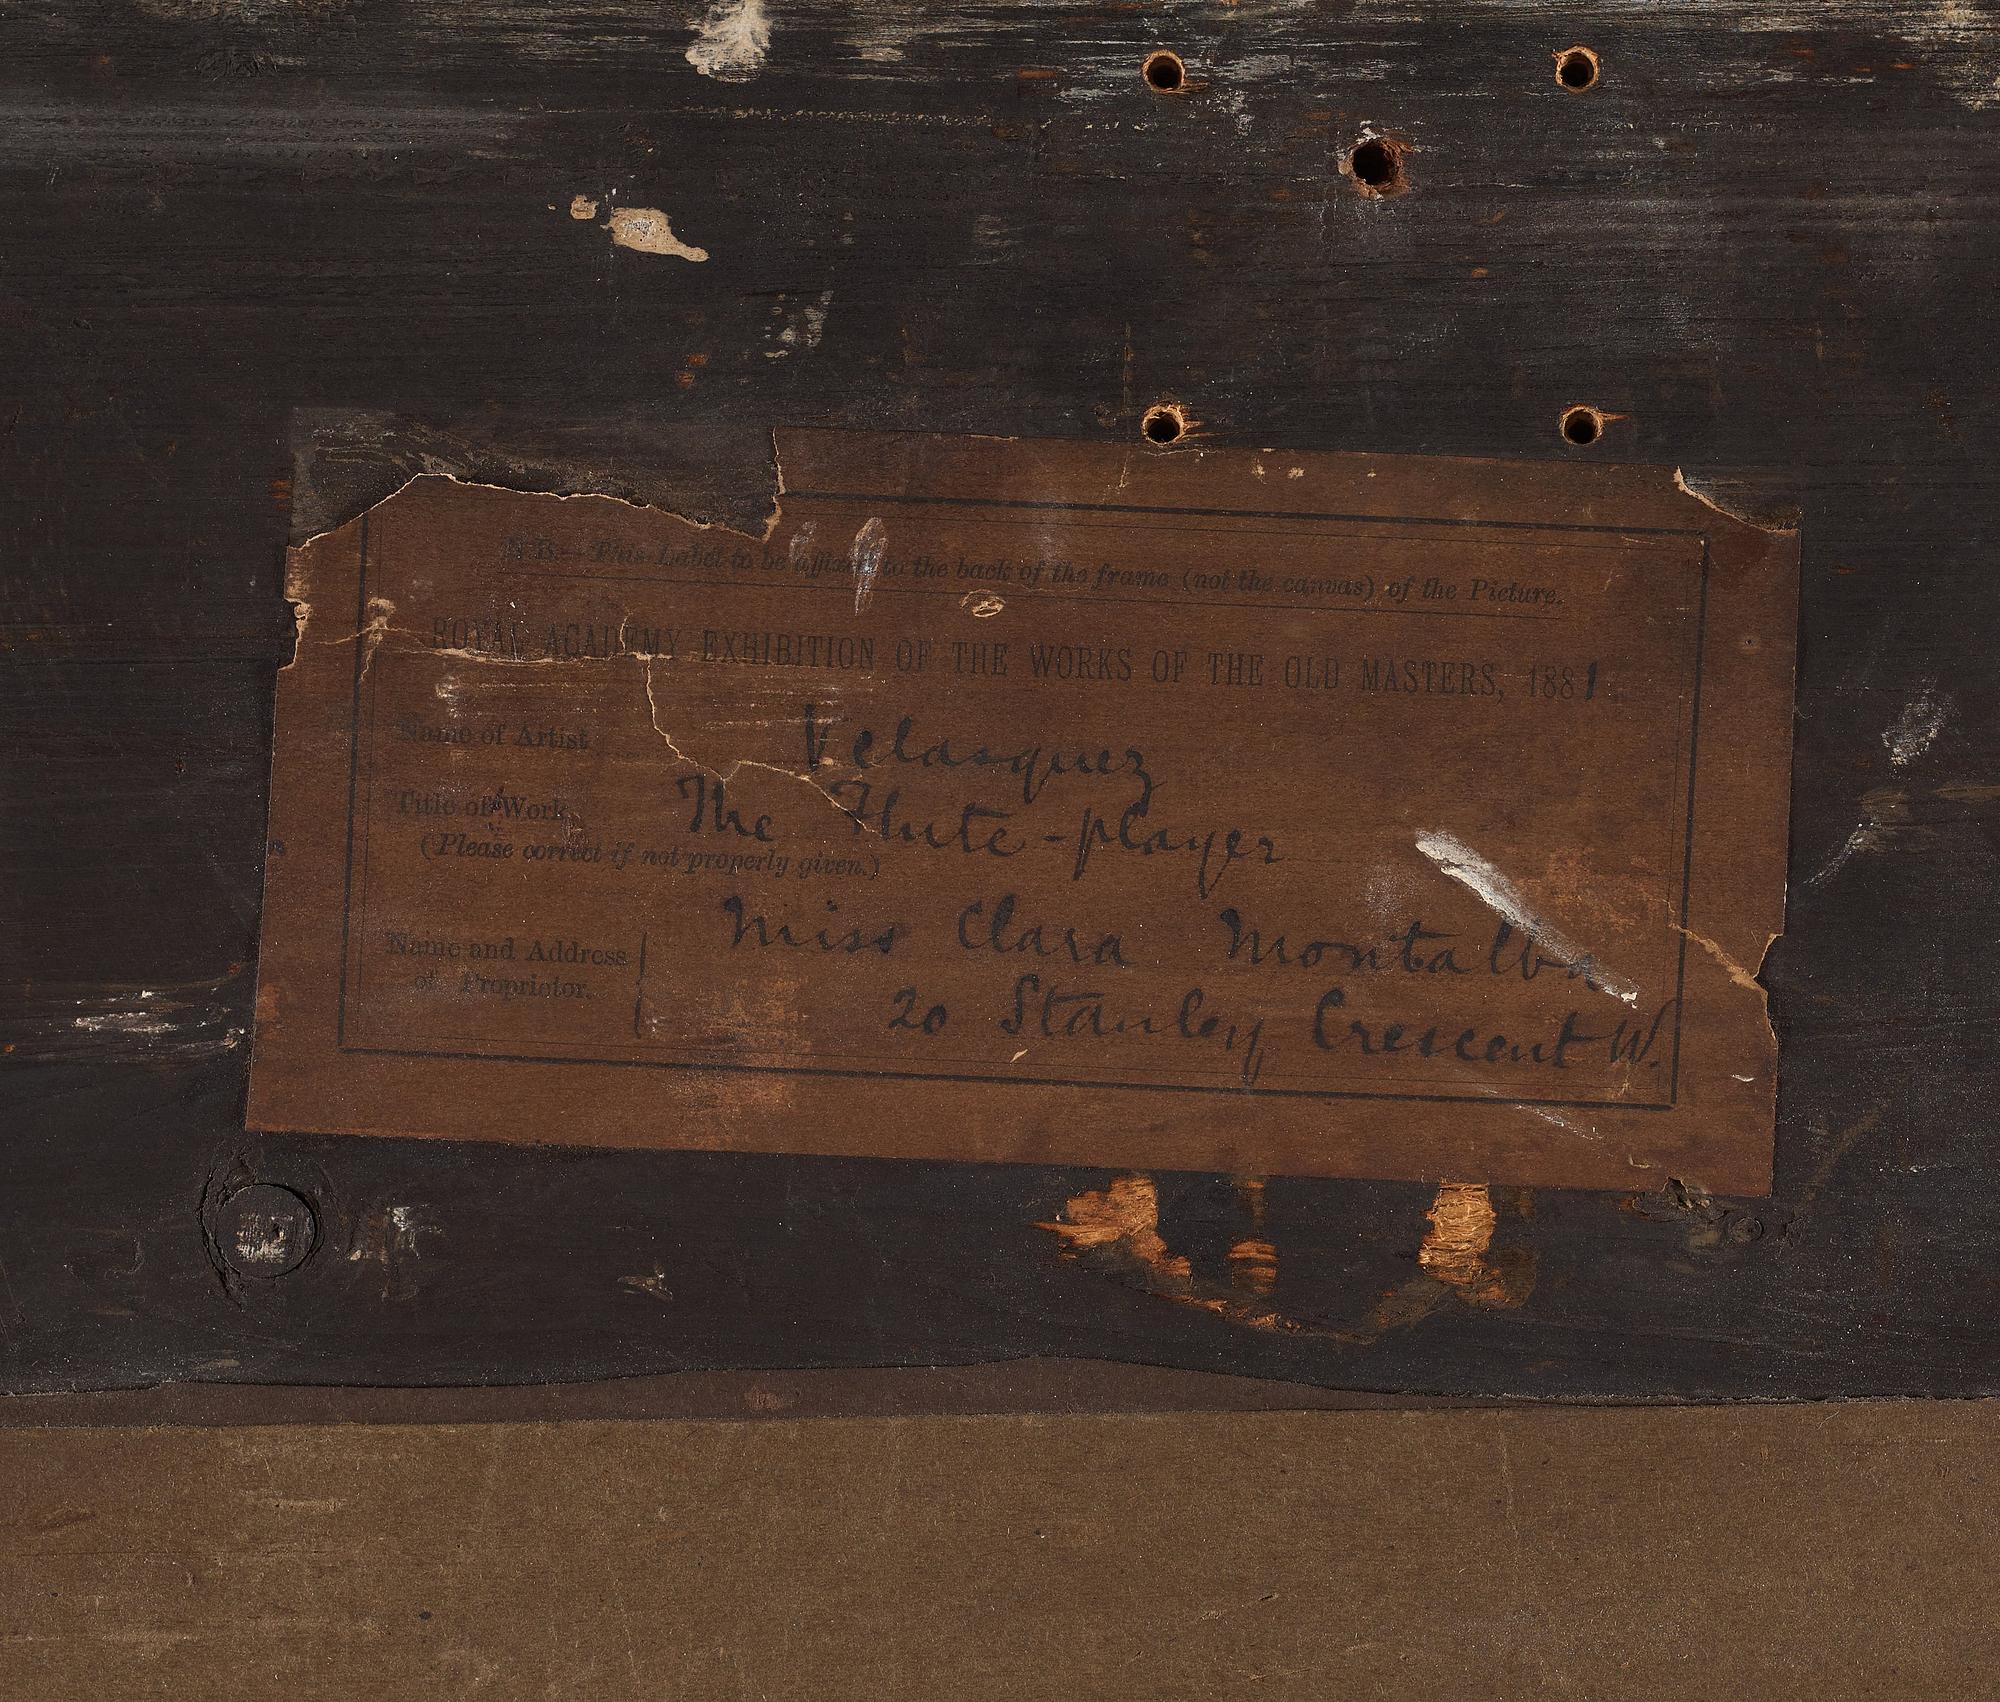 N.B.—This Label to be affixed to the back of the frame (not the canvas) of the Picture.
ROYAL ACADEMY EXHIBITION OF THE WORKS OF THE OLD MASTERS, 1881
Name of Artist Velasquez
Title of Work The Flute-player
(Please correct if not properly given.)
Name and Address Miss Clara Montalba
of Proprietor. 20 Stanley Crescent W.